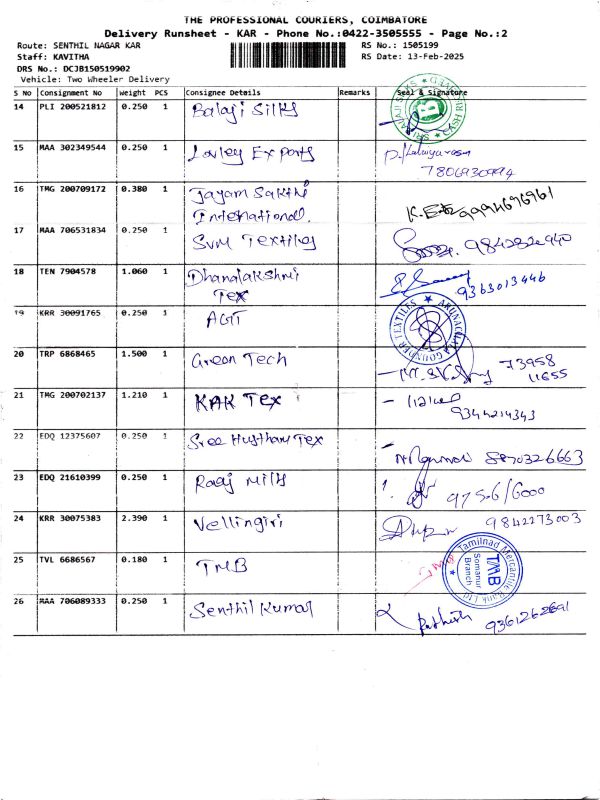 THE PROFESSIONAL COURIERS, COIMBATORE
Delivery Runsheet - KAR - Phone No.:0422-3505555 - Page No.:2
Route: SENTHIL NAGAR KAR
RS No.: 1505199
Staff: KAVITHA
RS Date: 13-Feb-2025
DRS No.: DCJB150519902
Vehicle: Two Wheeler Delivery
S No Consignment No Weight PCS Consignee Details Remarks Seal & Signature
14 PLI 200521812 0.250 1 Balaji Silks
15 MAA 302349544 0.250 1 Lovley Exports
7806930994
16 TMG 200709172 0.380 1 Jayam Sakthi
International. 9994696961
17 MAA 706531834 0.250 1 SVM Textiles
18 TEN 7904578 1.060 1 Dhanalakshmi
Tex 9363013446
19 KRR 30091765 0.250 1 AGT
ARUNACHALA GOUNDER TEXTILES
20 TRP 6868465 1.500 1 Green Tech 73958
11655
21 TMG 200702137 1.210 1 KAK Tex
9344214343
22 EDQ 12375607 0.250 1 Sree Hustham Tex
8870326663
23 EDQ 21610399 0.250 1 Raaj Milks
24 KRR 30075383 2.390 1 Vellingiri 9842273003
25 TVL 6686567 0.180 1 TMB
Tamilnad Mercantile Bank Ltd
TMB
Somanur
Branch
26 MAA 706089333 0.250 1 Senthil Kumar
9361262691